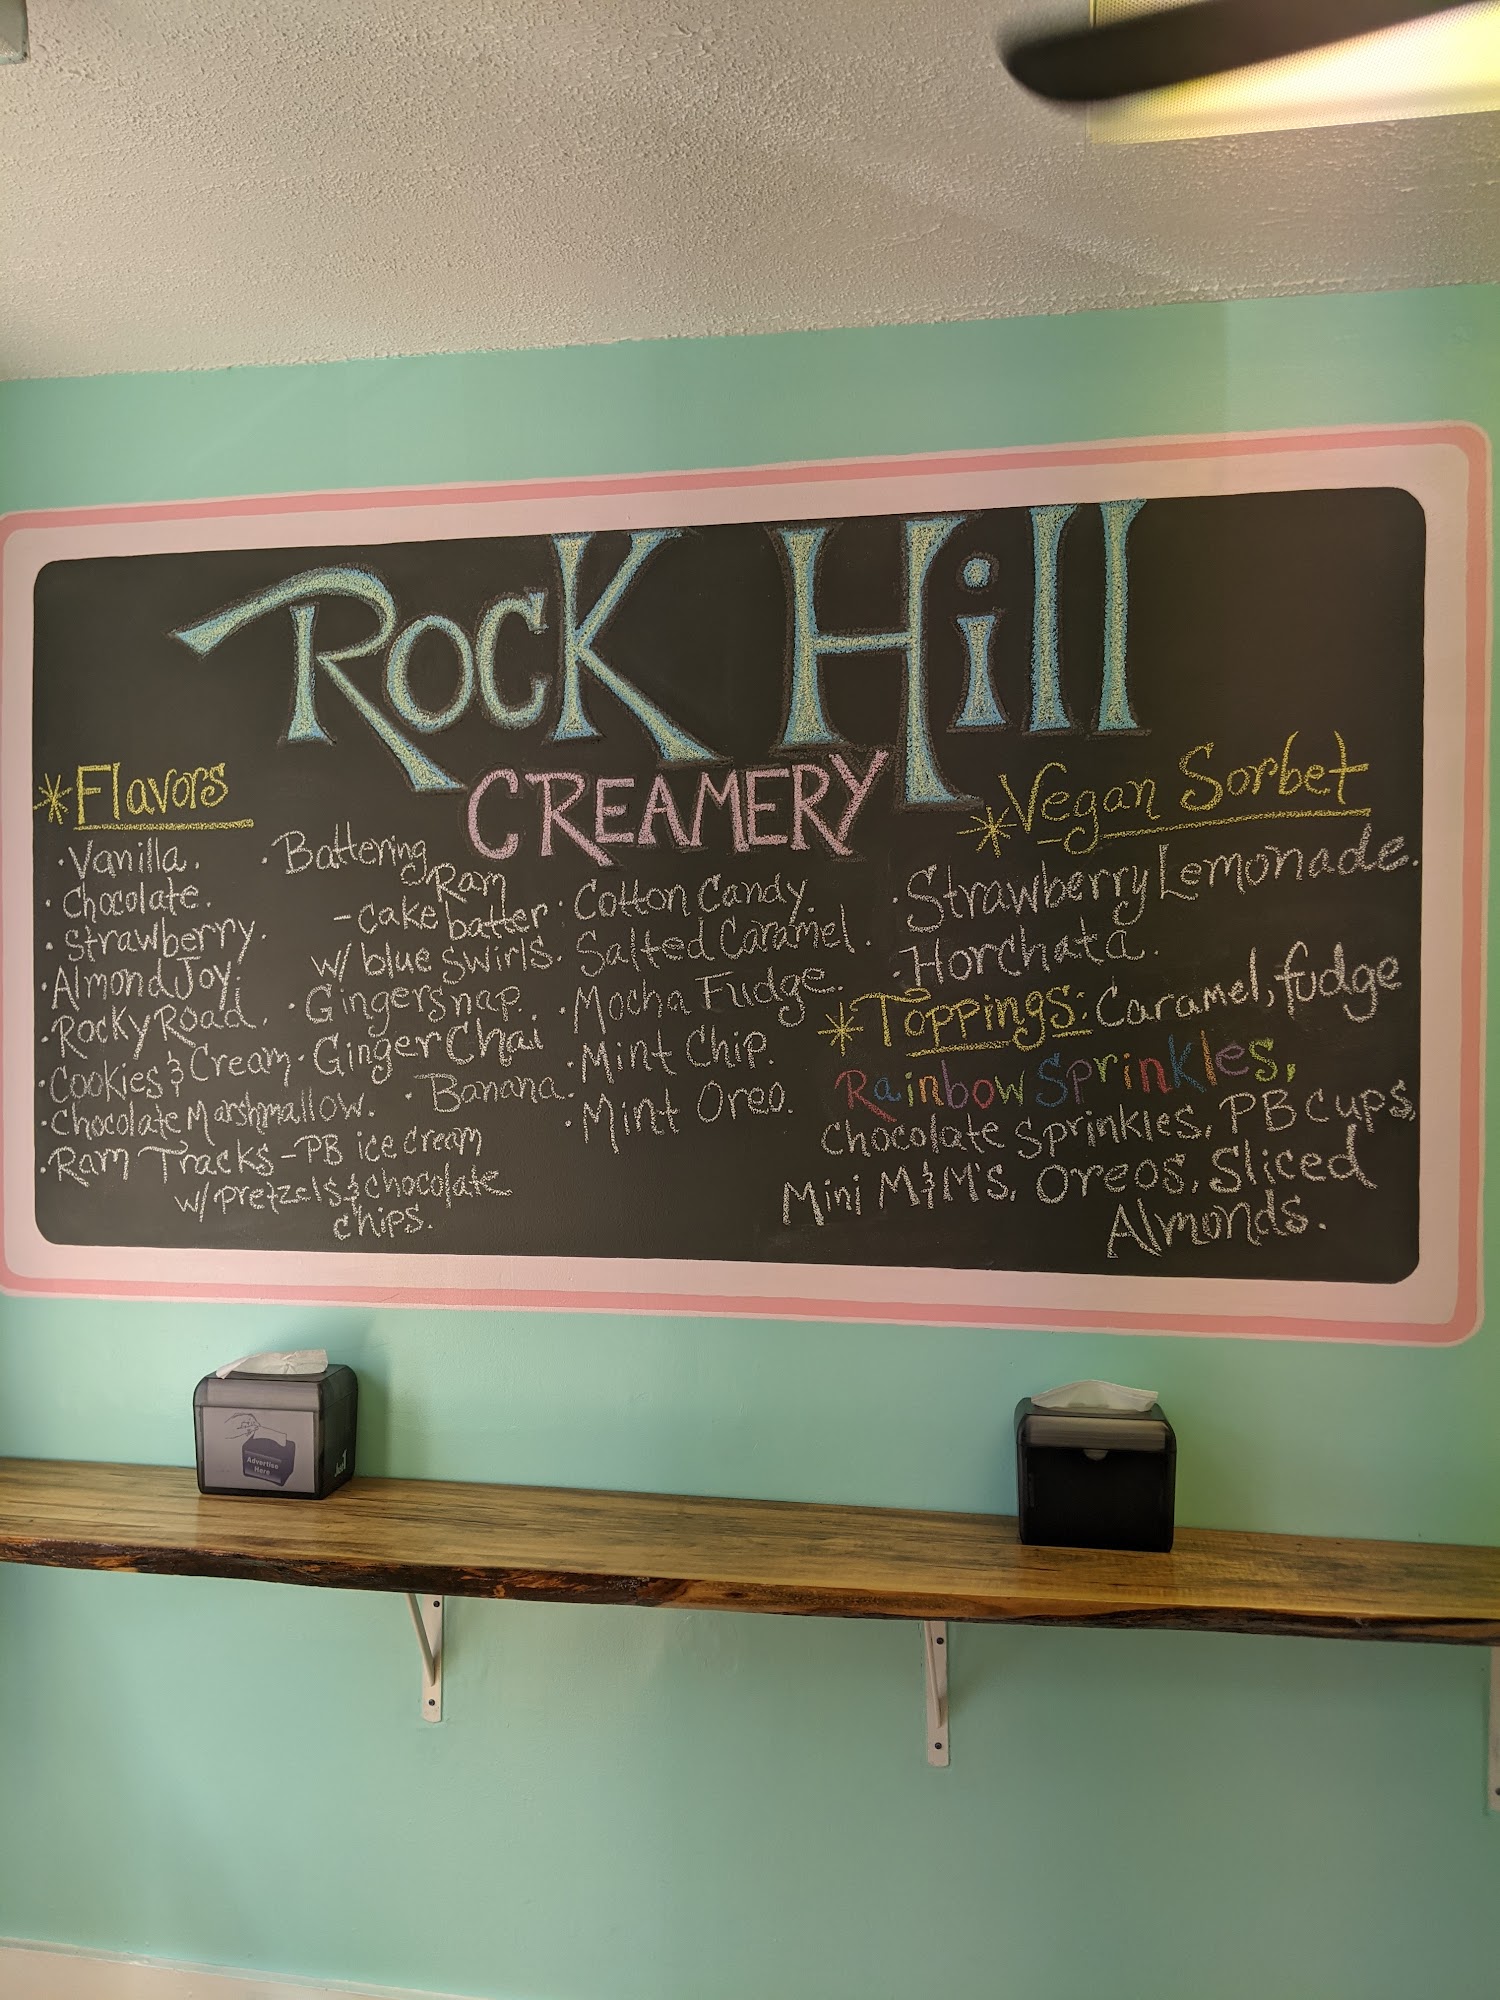 Rock Hill
CREAMERY
*Flavors
• Vanilla.
• Chocolate.
• Strawberry.
• Almond Joy.
• Rocky Road.
• Cookies & Cream
• Chocolate Marshmallow.
• Ram Tracks - PB ice cream
w/ pretzels & chocolate
chips.
• Battering
Ram
- cake batter
w/ blue swirls.
• Gingersnap.
• Ginger Chai
• Banana.
• Cotton Candy
• Salted Caramel.
• Mocha Fudge.
• Mint Chip.
• Mint Oreo.
*Vegan Sorbet
• Strawberry Lemonade.
• Horchata.
*Toppings: Caramel, fudge
Rainbow Sprinkles,
Chocolate Sprinkles, PB Cups,
Mini M&M's, Oreos, Sliced
Almonds.
Advertise
Here